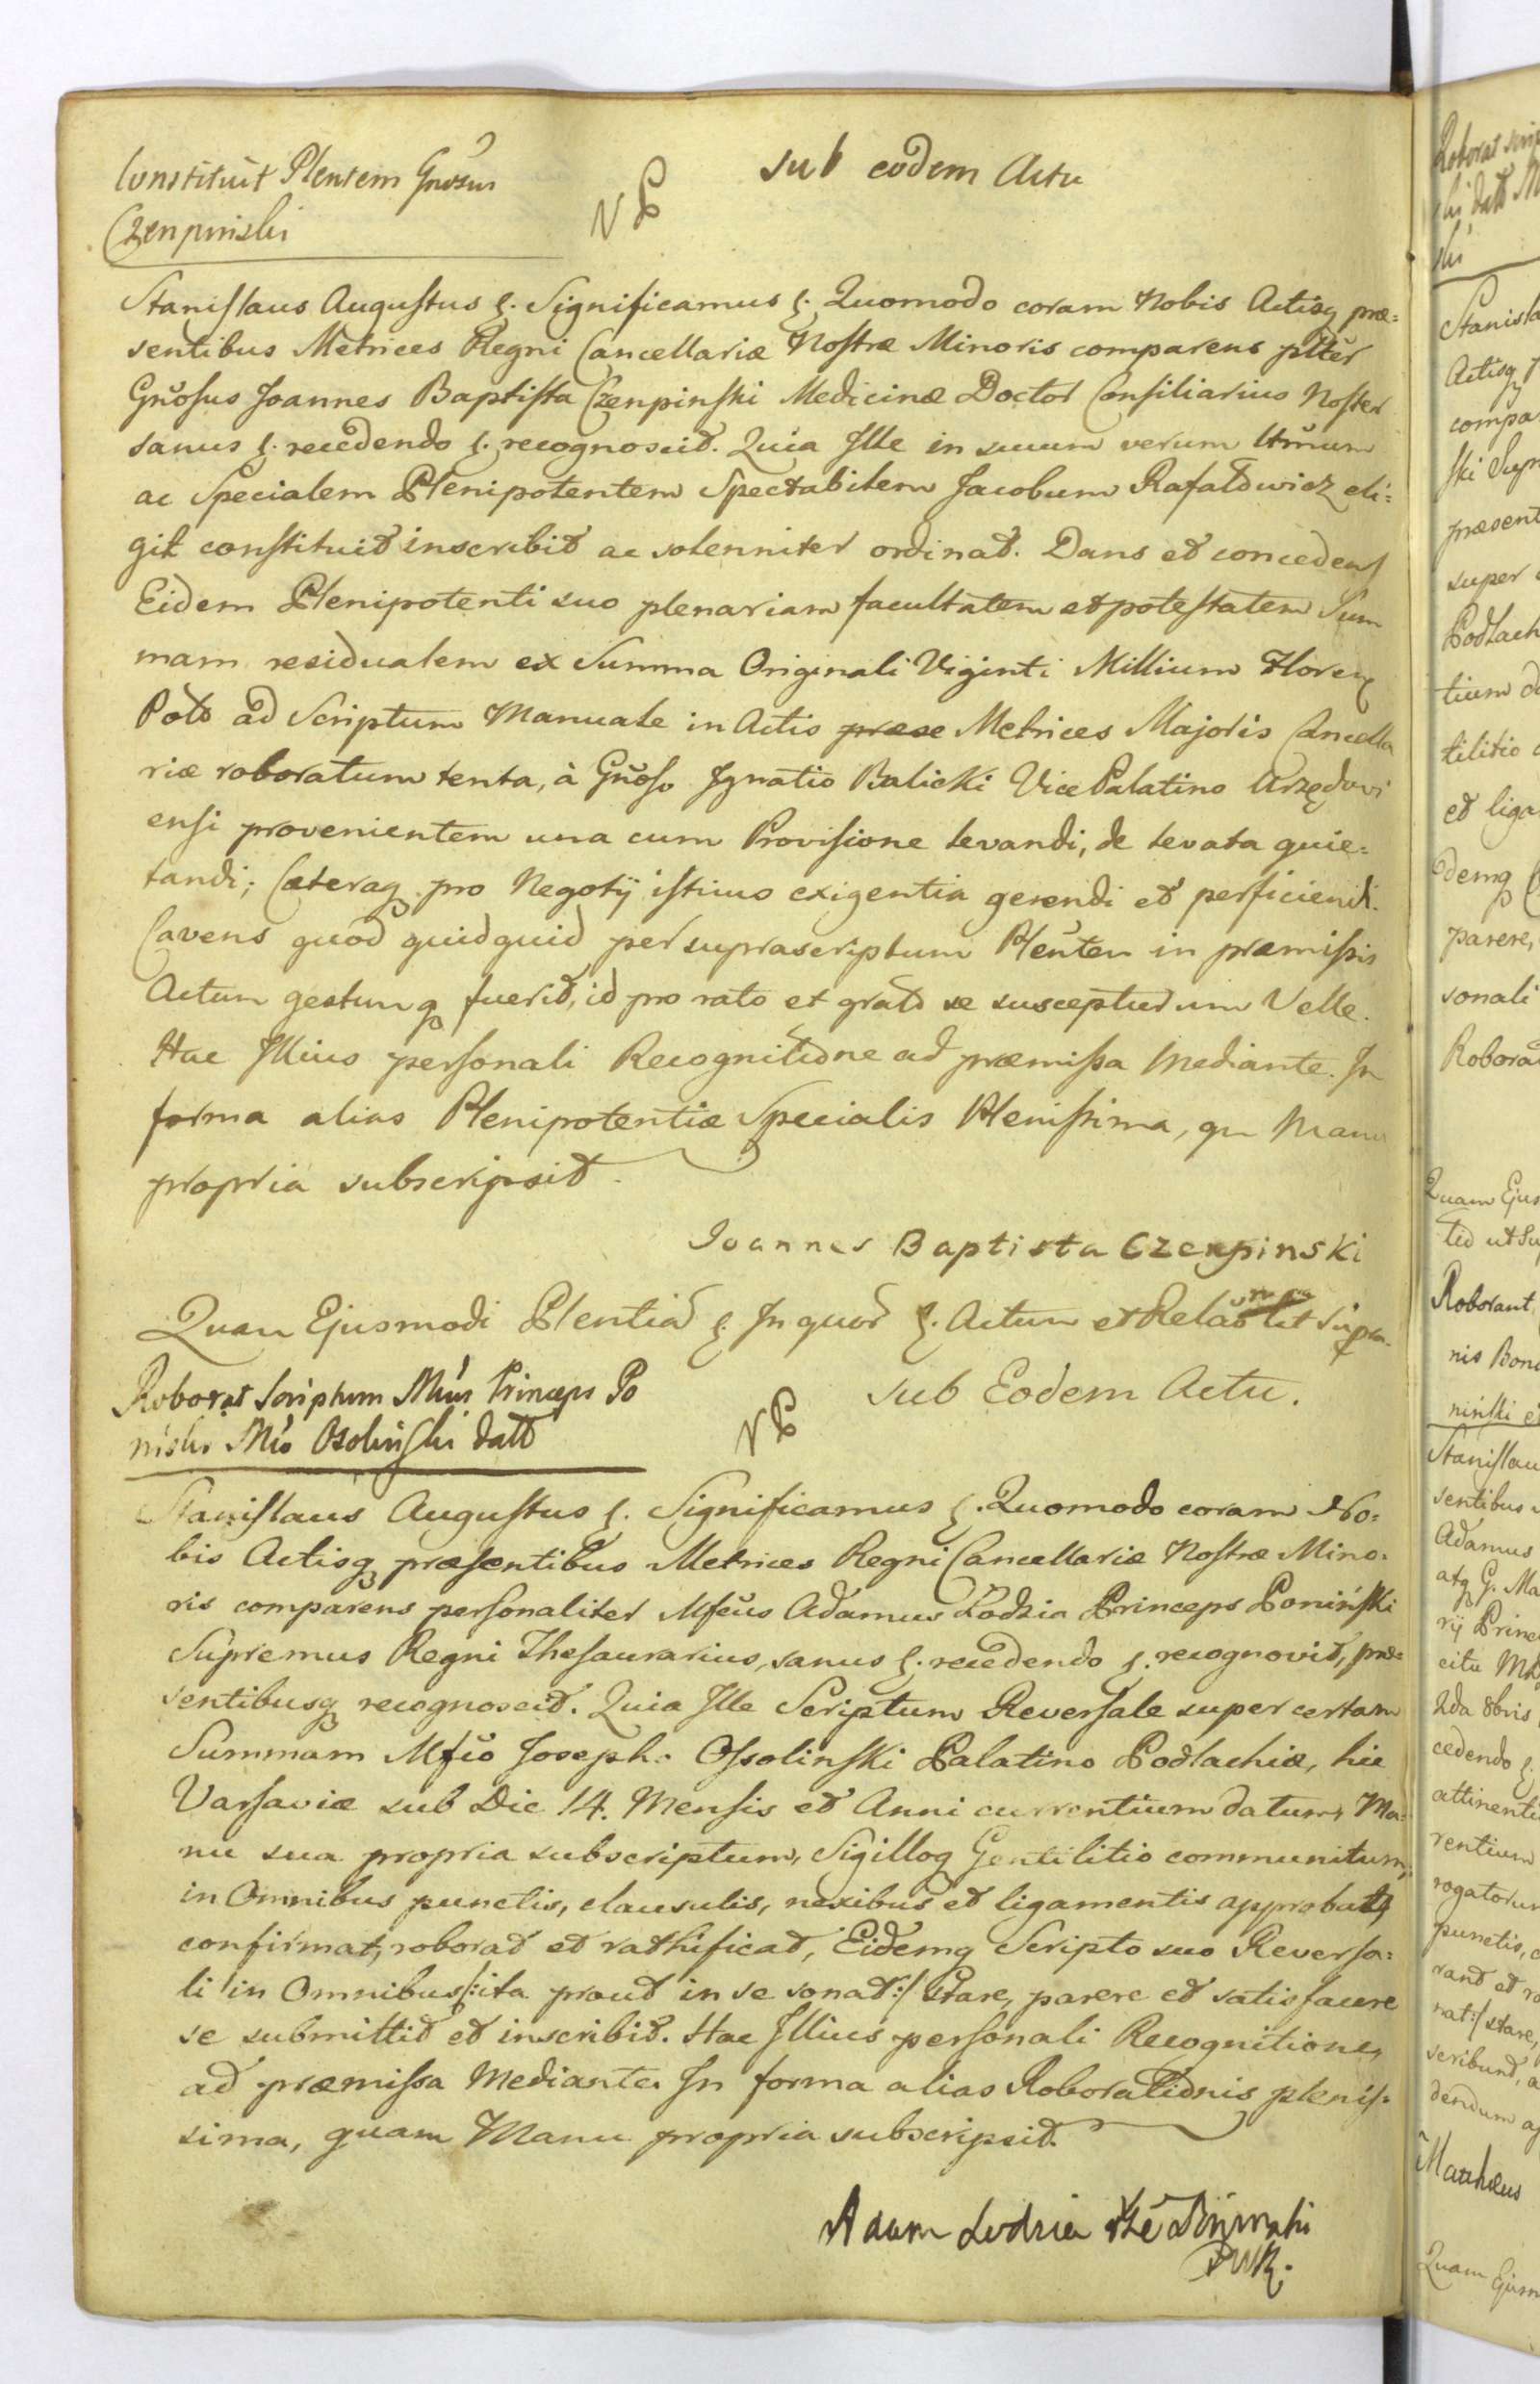 Constituit Plentem Gnosus
Czenpinski
NP
sub eodem Actu
Stanislaus Augustus &. Significamus &. Quomodo coram Nobis Actisq præ=
sentibus Metrices Regni Cancellariæ Nostræ Minoris comparens plter
Gnosus Joannes Baptista Czenpinski Medicinæ Doctor Consiliarius Noster
sanus &. recedendo &. recognoscit. Quia Ille in suum verum Ltmum
ac Specialem Plenipotentem Spectabilem Jacobum Rafałowicz eli=
git constituit inscribit ac solenniter ordinat. Dans et concedens
Eidem Plenipotenti suo plenariam facultatem et potestatem Sum
mam residualem ex Summa Originali Viginti Millium Floren
Polo ad Scriptum Manuale in Actis præse Metrices Majoris Cancella
riæ roboratum tenta, à Gnoso Ignatio Balicki Vice Palatino Urzędovi
ensi provenientem una cum Provisione levandi, de levata quie=
tandi; Cæteraq pro Negotij istius exigentia gerendi et perficiendi.
Cavens quod quidquid per supra scriptum Plentem in præmissis
Actum gestumq fuerit, id pro rato et grato se suscepturum Velle.
Hac Illius personali Recognitione ad præmissa Mediante. In
forma alias Plenipotentiæ Specialis Plenissima, qu Manu
propria subscripsit.
Joannes Baptista Czenpinski
Quam Ejusmodi Plentia &. In quor &. Actum et Relat ut Supra.
Roborat Scriptum Mfius Princeps Po
niński Mfio Osoliński datt
NP
Sub Eodem Actu.
Stanislaus Augustus &. Significamus &. Quomodo coram No=
bis Actisq præsentibus Metrices Regni Cancellariæ Nostræ Mino=
ris comparens personaliter Mfcus Adamus Łodzia Princeps Poniński
Supremus Regni Thesaurarius, sanus &. recedendo &. recognovit, præ=
sentibusq recognoscit. Quia Ille Scriptum Reversale super certam
Summam Mfco Josepho Ossolinski Palatino Podlachiæ, hic
Varsaviæ sub Die 14. Mensis et Anni currentium datum, Ma=
nu sua propria subscriptum, Sigilloq Gentilitio communitum,
in Omnibus punctis, clausulis, nexibus et ligamentis approbat,
confirmat, roborat et rathificat, Eidemq Scripto suo Reversa=
li in Omnibus/: ita prout in se sonat :/ stare, parere et satisfacere
se submittit et inscribit. Hac Illius personali Recognitione,
ad præmissa Mediante. In forma alias Roborationis plenis=
sima, quam Manu propria subscripsit.
Adam Lodzia Xże Poninski
PWK.